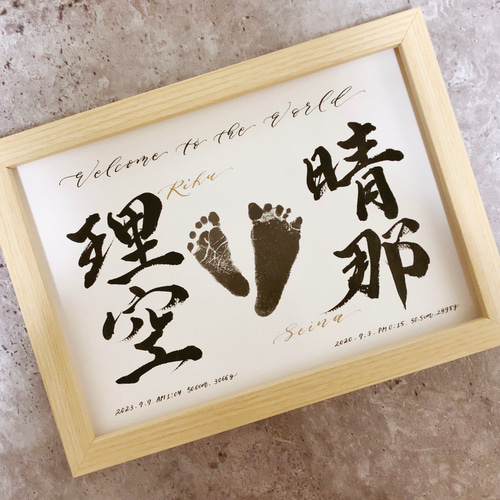 Welcome to the World
Riku
理空
2023.9.9. AM1:04 50.0cm. 3006g
晴那
Seina
2020.9.3. PM0:15. 50.5cm. 2998g